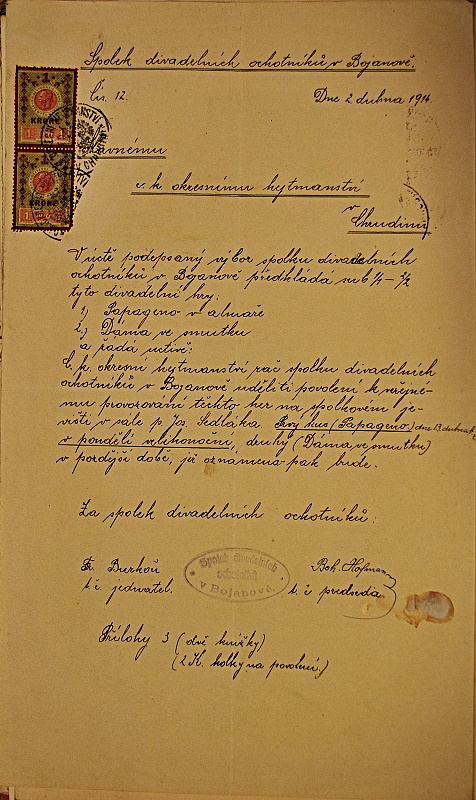 Spolek divadelních ochotníků v Bojanově.
Čís. 12.
Dne 2 dubna 1914.
1
KRONE
1
KRONE
Slavnému
c. k. okresnímu hejtmanství
v
Chrudimi
V úctě podepsaný výbor spolku divadelních
ochotníků v Bojanově předkládá sub 1/2 – 2/2
tyto divadelní hry:
1) Papageno v almaře
2) Dáma ve smutku
a žádá uctivě:
C. k. okresní hejtmanství rač spolku divadelních
ochotníků v Bojanově uděliti povolení k veřejné-
mu provozování těchto her na spolkovém je-
višti v sále p. Jos. Sedláka. Prvý kus (Papageno) dne 13. dubna
v pondělí velikonoční, druhý (Dáma ve smutku)
v pozdější době, jež oznámena pak bude.
Za spolek divadelních ochotníků:
Fr. Burkoň
t. č. jednatel.
Spolek divadelních
ochotníků
v Bojanově.
Boh. Hofman
t. č. předseda
Přílohy 3 (dvě knížky)
(2 K. kolky na povolení.)